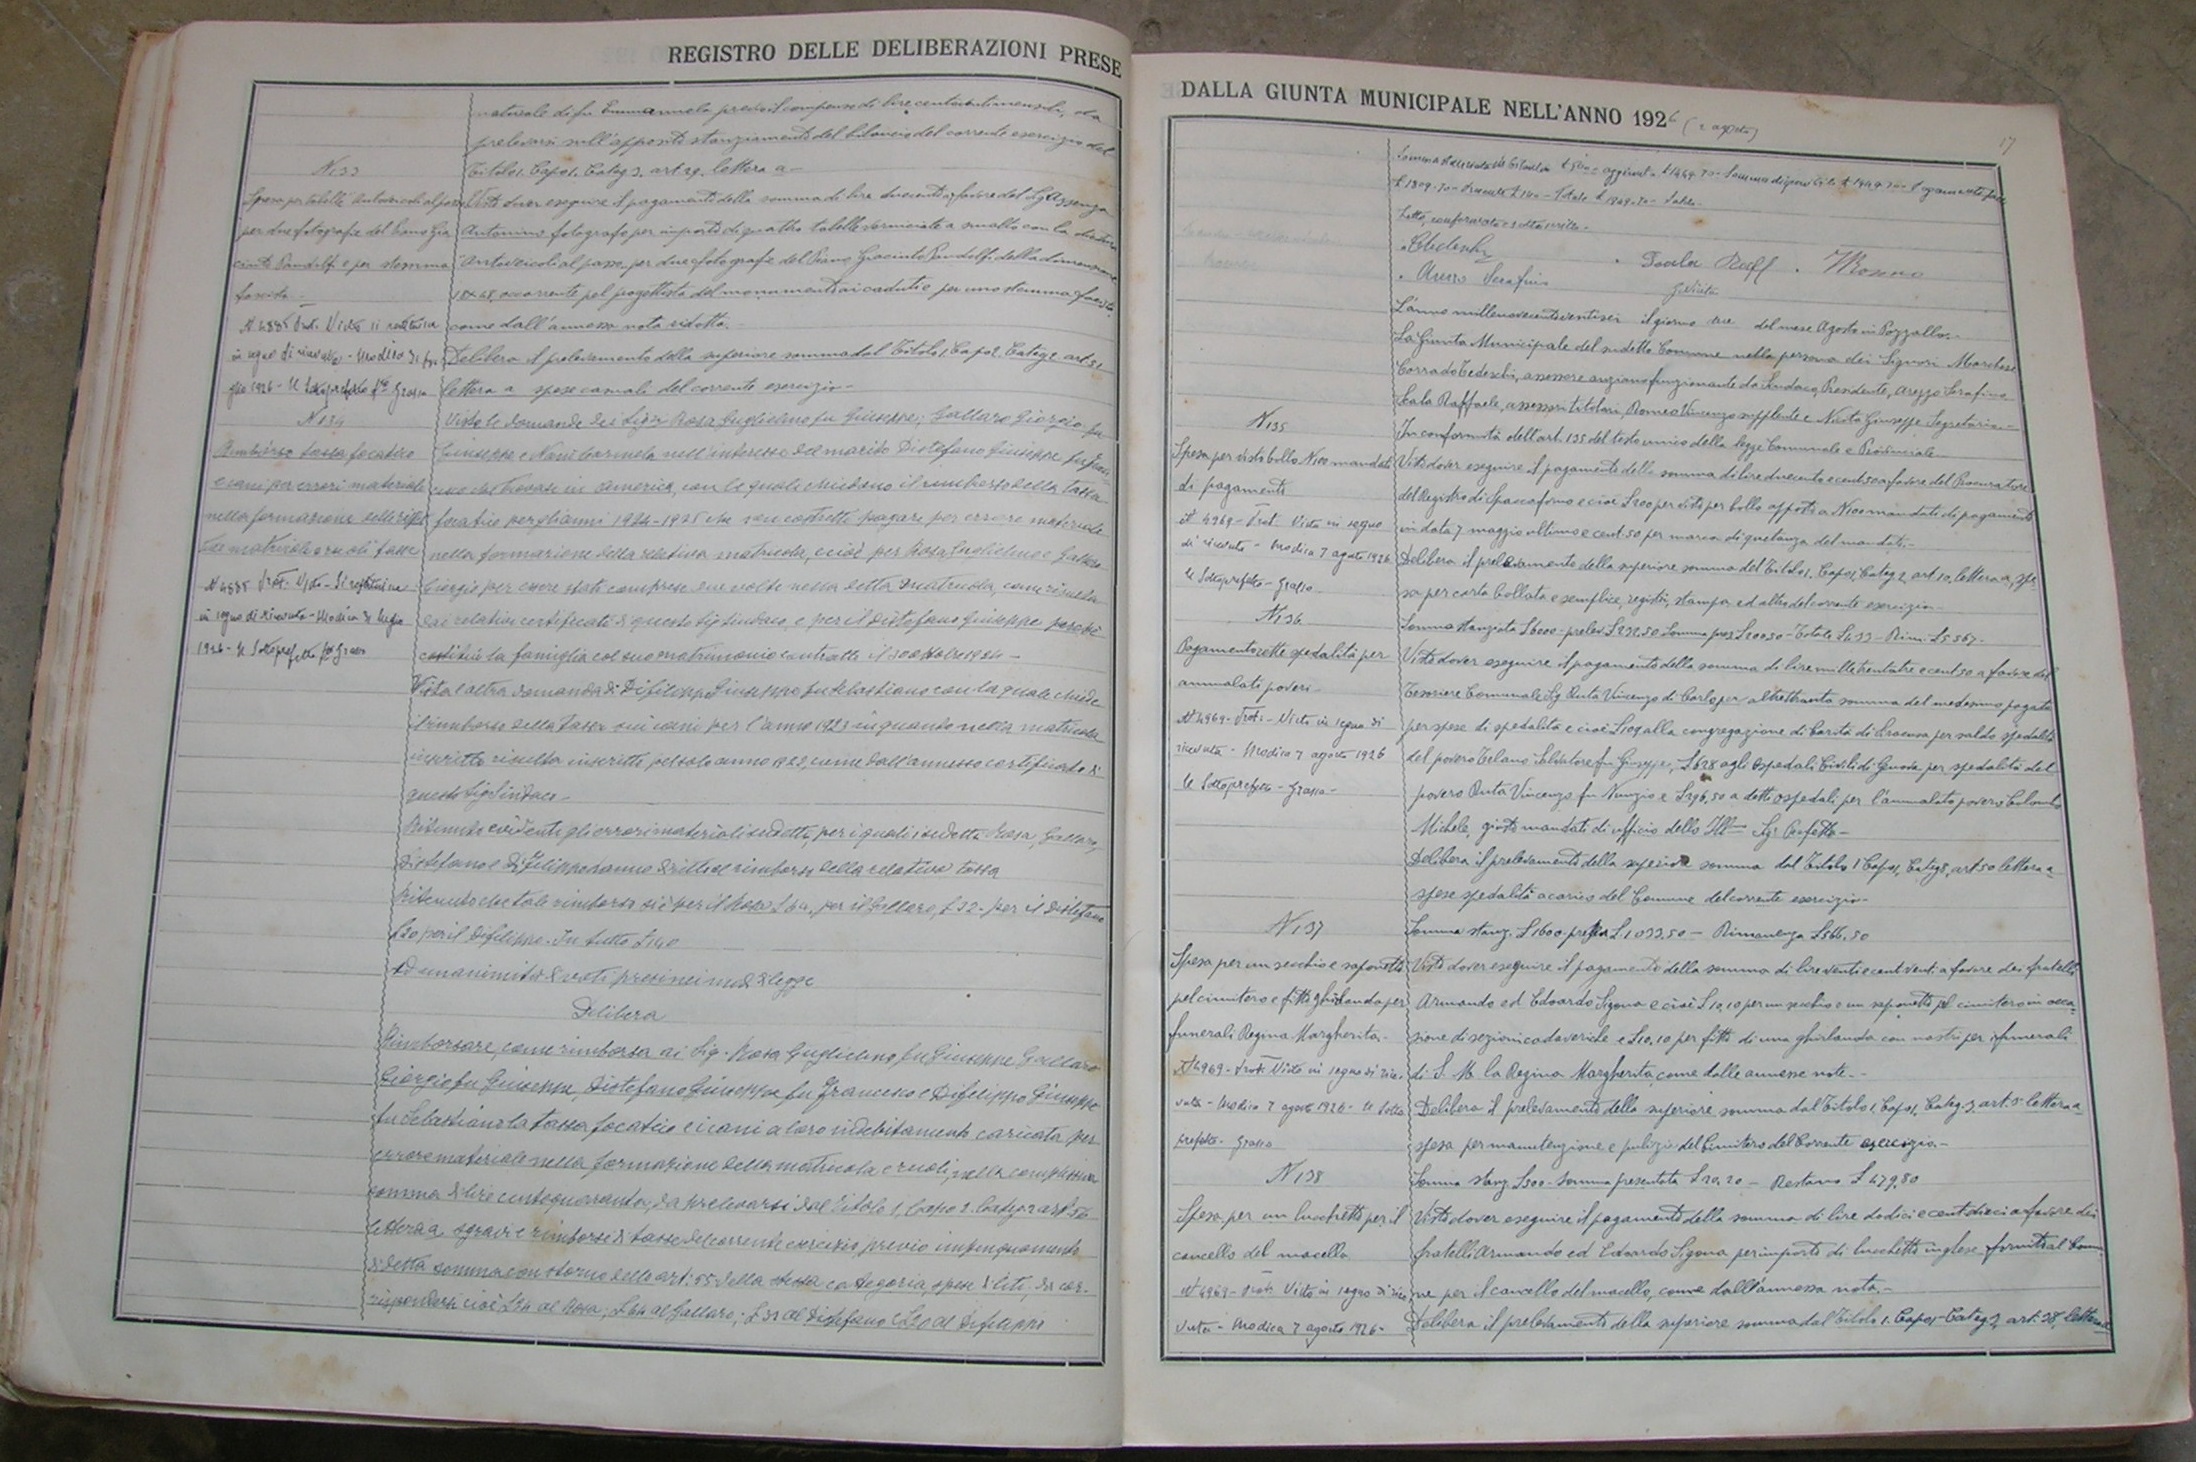 REGISTRO DELLE DELIBERAZIONI PRESE
naturale di fu Emmanuela presso il compenso di lire centoventi mensili, da
prelevarsi sull'apposito stanziamento del bilancio del corrente esercizio del
Titolo 1. Capo 1. Categ. 3. art. 29. lettera a-
N 133
Spesa per tabelle Autoveicoli al passo
per due fotografie del Piano Gia
cinto Pandolfi e per stemma
fascista.-
N 4885 Prot. Visto si restituisce
in segno di ricevuta - Modica 31 lu
glio 1926 - Il Sottoprefetto Grasso
Visto dover eseguire il pagamento della somma di lire duecento a favore del Sig. Assenza
Antonino fotografo per importo di quattro tabelle verniciate a smalto con la dicitura
Autoveicoli al passo, per due fotografie del Piano Giacinto Pandolfi della dimensione
18x48, occorrente pel progettista del monumento ai caduti e per uno stemma fascista
come dall'annessa nota ridotta.
Delibera il prelevamento della superiore somma dal Titolo 1, Capo 2, Categ 2 art 51
lettera a spese casuali del corrente esercizio-
N 134
Rimborso tassa focatico
e cani per errori materiali
nella formazione delle
matricole e ruoli tasse
N 4885 Prot. Visto - Si restituisce
in segno di ricevuta - Modica 31 luglio
1926 - Il Sottoprefetto Grasso
Viste le domande dei Sigri Rosa Guglielmo fu Giuseppe; Gallaro Giorgio fu
Giuseppe e Nanì Carmela nell'interesse del marito Distefano Giuseppe fu Fran-
cesco che trovasi in America, con le quali chiedono il rimborso della tassa
focatico per gli anni 1924-1925 che son costretti pagare per errore materiale
nella formazione della relativa matricola, e cioè per Rosa Guglielmo e Gallaro
Giorgio per essere stati compresi due volte nella detta matricola, come risulta
dai relativi certificati di questo Sig. Sindaco e per il Distefano Giuseppe perchè
costituì la famiglia col suo matrimonio contratto il 30 ottobre 1924 -
Vista l'altra domanda di Difilippo Giuseppe fu Sebastiano con la quale chiede
il rimborso della tassa sui cani per l'anno 1923 in quanto nella matricola
inscritto risulta inscritto pel solo anno 1922, come dall'annesso certificato di
questo Sig Sindaco -
Ritenuto evidenti gli errori materiali sudetti, per i quali i sudetti Rosa, Gallaro,
Distefano e Difilippo hanno diritto al rimborso della relativa tassa
Ritenuto che tale rimborso si è per il Rosa £ 64, per il Gallaro, £ 32 - per il Distefano
£20 per il Difilippo. In tutto £ 140
Ad unanimità di voti presi nei modi di legge
Delibera
Rimborsare, come rimborsa ai Sig. Rosa Guglielmo fu Giuseppe Gallaro
Giorgio fu Giuseppe, Distefano Giuseppe fu Francesco e Difilippo Giuseppe
fu Sebastiano la tassa focatico e i cani a loro indebitamente caricata per
errore materiale nella formazione della matricola e ruoli, nella complessiva
somma di lire centoquaranta, da prelevarsi dal Titolo 1, Capo 2. Categ 2 art 52
lettera a sgravi e rimborsi di tasse del corrente esercizio previo impinguamento
di detta somma con storno dello art. 55 della stessa categoria, spese di liti, da cor-
rispondersi cioè £24 al Rosa, £ 64 al Gallaro, £ 32 al Distefano e £20 al Difilippo
DALLA GIUNTA MUNICIPALE NELL'ANNO 1926 (2 agosto)
17
Somma stanziata in bilancio £ 500 - aggiunta £ 1449.70 - Somma disponibile £ 1949.70 - Pagamenti fatti
£ 1809.70 - Presente £ 140 - Totale £ 1949.70 - Saldo.-
Letto, confermato e sottoscritto.-
CTedeschi
Scala Raff
VRomeo
Arezzo Serafino
GNicita
L'anno millenovecentoventisei il giorno due del mese Agosto in Pozzallo.-
La Giunta Municipale del sudetto Comune nella persona dei Signori Marchese
Corrado Tedeschi, assessore anziano funzionante da Sindaco, Presidente, Arezzo Serafino
Scala Raffaele, assessori titolari, Romeo Vincenzo supplente e Nicita Giuseppe Segretario.-
In conformità dell'art. 135 del testo unico della legge Comunale e Provinciale-
N 135
Spesa per visto bollo N 100 mandati
di pagamento
N 4969 - Prot. Visto in segno
di ricevuta - Modica 7 agosto 1926
Il Sottoprefetto - Grasso
Visto dover eseguire il pagamento della somma di lire duecento e cent. 50 a favore del Procuratore
del Registro di Spaccaforno e cioè £ 200 per visti per bollo apposti a N 100 mandati di pagamento
in data 7 maggio ultimo e cent. 50 per marca di quietanza del mandato.-
Delibera il prelevamento della superiore somma dal Titolo 1, Capo 1, Categ 2, art. 10, lettera a, spe-
sa per carta bollata e semplice, registri, stampa ed altro del corrente esercizio-
Somma stanziata £ 6000 - prelev. £ 232.50 Somma pres £ 200.50 - Totale £ 433 - Rim. £ 5567.-
N 136
Pagamento rette spedalità per
ammalati poveri-
N 4969 - Prot. - Visto in segno di
ricevuta - Modica 7 agosto 1926
Il Sottoprefetto - Grasso-
Visto dover eseguire il pagamento della somma di lire milletrentatre e cent. 50 a favore del
Tesoriere Comunale Sig. Ruta Vincenzo di Carlo per altrettanta somma del medesimo pagata
per spese di spedalità e cioè £109 alla congregazione di Carità di Siracusa per saldo spedalità
del povero Salvatore fu Giuseppe, £ 628 agli Ospedali Civili di Genova per spedalità del
povero Ruta Vincenzo fu Nunzio e £ 296,50 a detti ospedali per l'ammalato povero Colombo
Michele, giusto mandati di ufficio dello Ill.mo Sig. Prefetto-
Delibera il prelevamento della superiore somma dal Titolo 1 Capo 1, Categ 8, art. 50 lettera a
spese spedalità a carico del Comune del corrente esercizio-
Somma stanz. £ 1600 - £ 1033,50 - Rimanenza £ 566,50
N 137
Spesa per un secchio e saponetto
pel cimitero e fitto ghirlanda per
funerali Regina Margherita-
N 4969 - Prot. Visto in segno di rice-
vuta - Modica 7 agosto 1926 - Il Sotto
prefetto - Grasso
Visto dover eseguire il pagamento della somma di lire venti e cent. venti a favore dei fratelli
Armando ed Edoardo Sigona e cioè £ 10,10 per un secchio e un saponetto pel cimitero in occa-
sione di sezioni cadaveriche e £ 10,10 per fitto di una ghirlanda con nastri per i funerali
di S. M. la Regina Margherita, come dalle annesse note.-
Delibera il prelevamento della superiore somma dal Titolo 1, Capo 1, Categ. 3, art. 5 lettera a
spesa per manutenzione e pulizia del Cimitero del Corrente esercizio.-
Somma stanz. £500 - Somma presentata £ 20,20 - Restano £ 479,80
N 138
Spesa per un lucchetto per il
cancello del macello
N 4969 - Prot. Visto in segno di rice
vuta - Modica 7 agosto 1926-
Visto dover eseguire il pagamento della somma di lire dodici e cent. dieci a favore dei
fratelli Armando ed Edoardo Sigona per importo di lucchetto inglese fornito al Comu
ne per il cancello del macello, come dall'annessa nota.-
Delibera il prelevamento della superiore somma dal Titolo 1. Capo 1-Categ 3, art. 28, lettera a